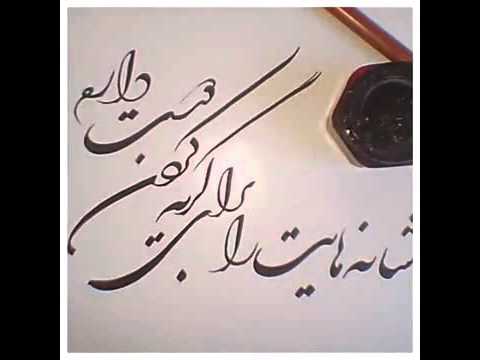 شانه هایت را برای گریه کردن دوست دارم